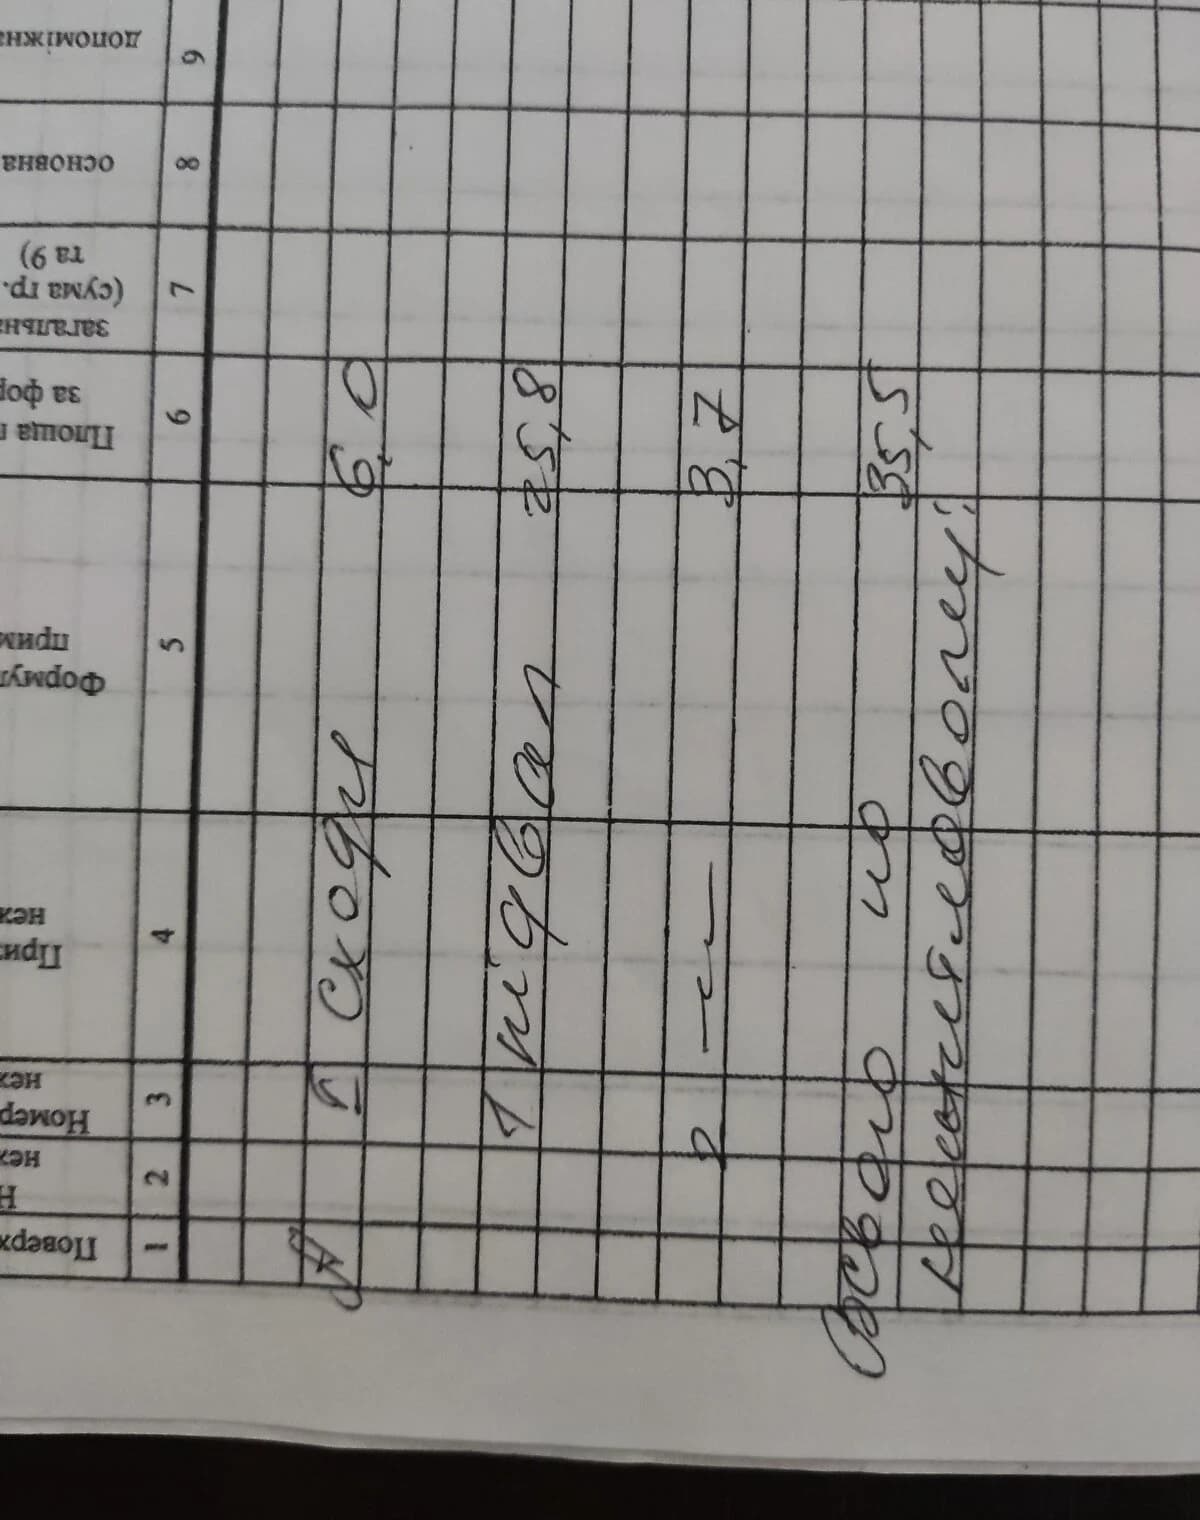 Поверх
Номер
неж
неж
Приз
неж
Формул
прим
Площа п
за фор
загальна
(сума гр.
та 9)
основна
допоміжна
1 2 3 4 5 6 7 8 9
А І Сходи 6,0
1 підвал 25,8
2 –"– 3,7
Всього по 35,5
нежитловому: